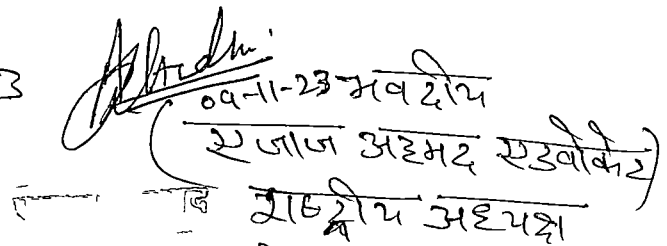 3
09-11-23 भवदीय
(एजाज अहमद एडवोकेट)
राष्ट्रीय अध्यक्ष